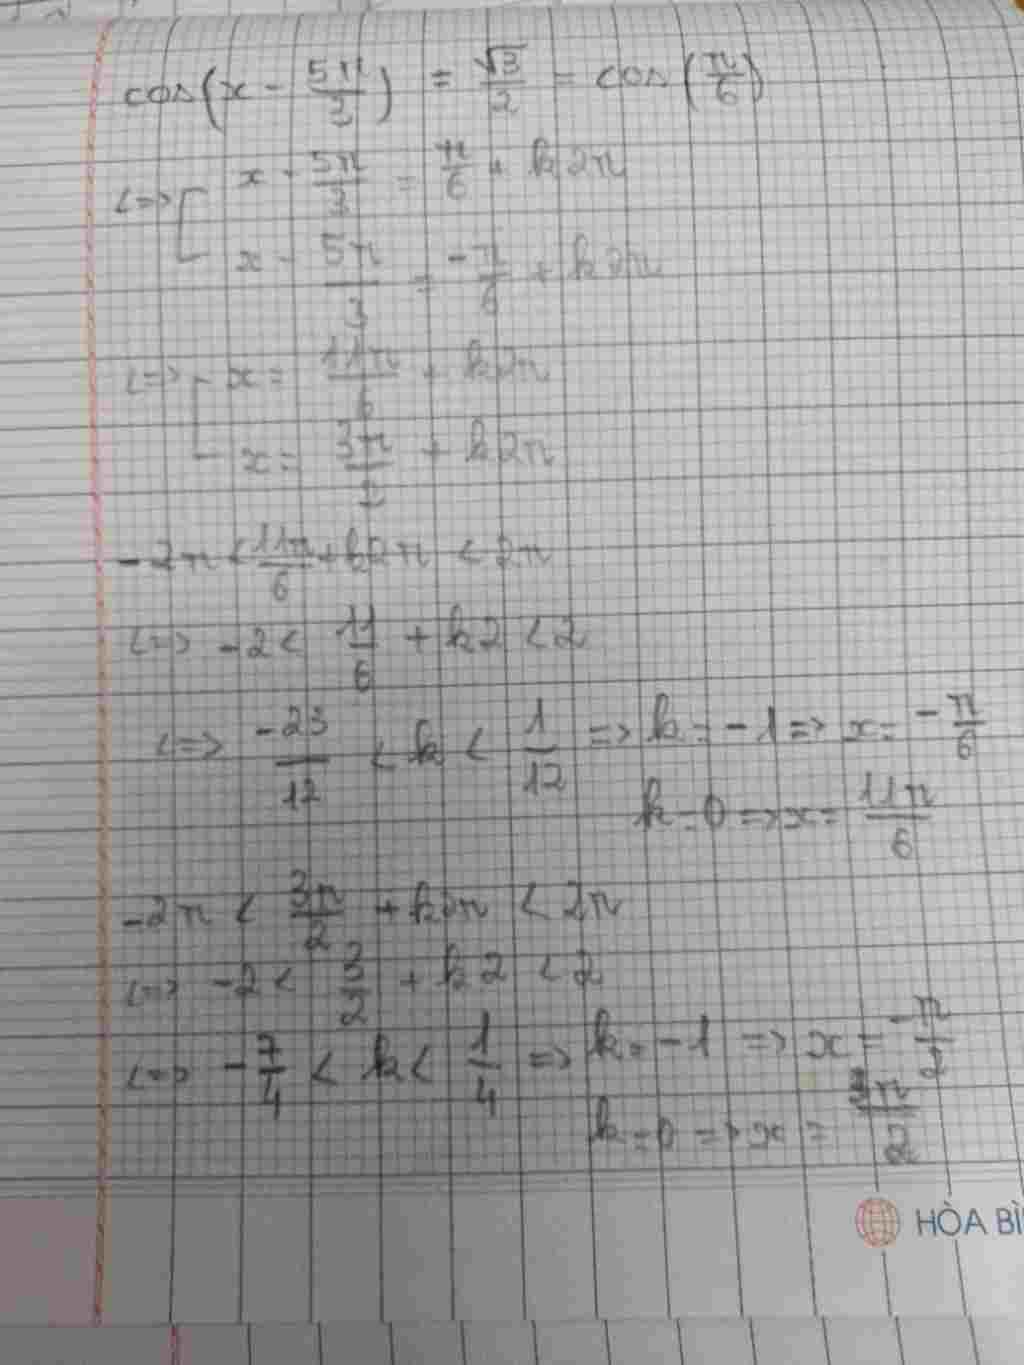 cos(x - 5π/3) = √3/2 = cos(π/6)
<=> [ x - 5π/3 = π/6 + k2π
x - 5π/3 = -π/6 + k2π
<=> [ x = 11π/6 + k2π
x = 3π/2 + k2π
-2π < 11π/6 + k2π < 2π
<=> -2 < 11/6 + k2 < 2
<=> -23/12 < k < 1/12 => k = -1 => x = -π/6
k = 0 => x = 11π/6
-2π < 3π/2 + k2π < 2π
<=> -2 < 3/2 + k2 < 2
<=> -7/4 < k < 1/4 => k = -1 => x = -π/2
k = 0 => x = 3π/2
HÒA BÌ